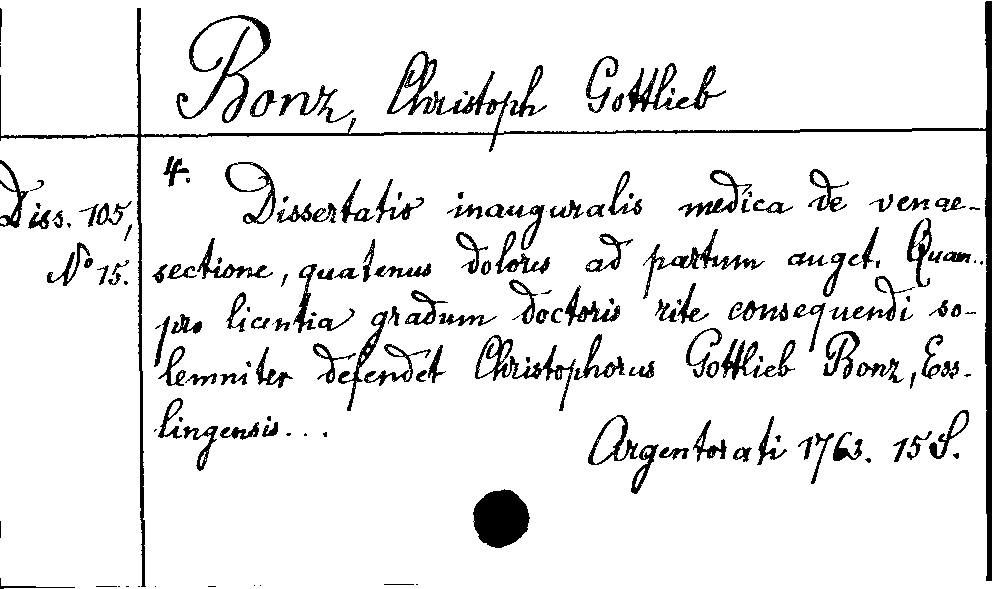 Bonz, Christoph Gottlieb
4.
Diss. 105,
No 15.
Dissertatio inauguralis medica de venae-
sectione, quatenus dolores ad partum auget. Quam..
pro licentia gradum doctoris rite consequendi so-
lemniter defendet Christophorus Gottlieb Bonz, Ess-
lingensis...
Argentorati 1763. 15 S.